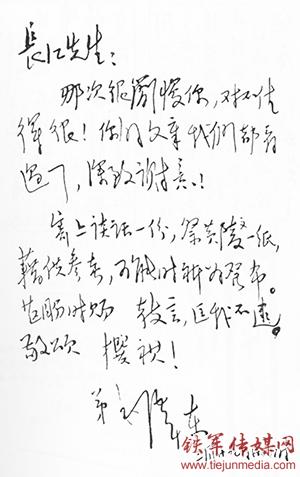 長江先生：
那次很簡慢你，对不住
得很！你的文章我们都看
过了，深致谢意！
寄上谈话一份，祭黄陵文一纸，
藉供参考，可能时祈为发布。
甚盼时赐 教言，匡我不逮。
敬颂 撰祺！
弟 毛泽东
铁军传媒网
www.tiejunmedia.com